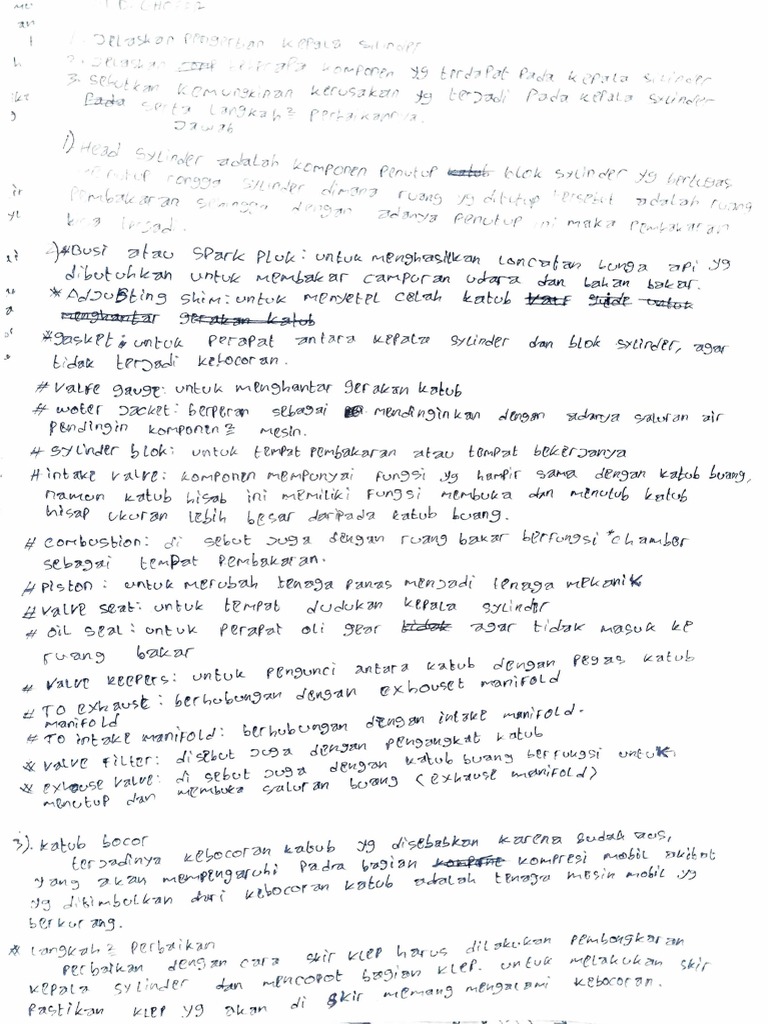 1. Jelaskan pengertian kepala silinder
2. Jelaskan beberapa komponen yg terdapat pada kepala silinder
3. Sebutkan kemungkinan kerusakan yg terjadi pada kepala sylinder
serta langkah² perbaikannya.
Jawab
1) Head sylinder adalah komponen penutup blok sylinder yg bertugas
menutup rongga sylinder dimana ruang yg ditutup tersebut adalah ruang
pembakaran sehingga dengan adanya penutup ini maka pembakaran
bisa terjadi.
2) *Busi atau Spark Pluk: untuk menghasilkan loncatan bunga api yg
dibutuhkan untuk membakar campuran udara dan bahan bakar.
* Adjusting shim: untuk menyetel celah katub
menghantar gerakan katub
*gasket: untuk perapat antara kepala sylinder dan blok sylinder, agar
tidak terjadi kebocoran.
# Valve gauge: untuk menghantar gerakan katub
# water jacket: berperan sebagai mendinginkan dengan adanya saluran air
pendingin komponen² mesin.
# sylinder blok: untuk tempat pembakaran atau tempat bekerjanya
# intake valve: komponen mempunyai fungsi yg hampir sama dengan katub buang,
namun katub hisab ini memiliki fungsi membuka dan menutub katub
hisap ukuran lebih besar daripada katub buang.
# combustion: di sebut juga dengan ruang bakar berfungsi *chamber
sebagai tempat pembakaran.
# piston : untuk merubah tenaga panas menjadi tenaga mekanik
# valve seat: untuk tempat dudukan kepala sylinder
# oil seal: untuk perapat oli gear tidak agar tidak masuk ke
ruang bakar
# valve keepers: untuk pengunci antara katub dengan pegas katub
# TO exhause : berhubungan dengan exhouset manifold
manifold
# TO intake manifold: berhubungan dengan intake manifold.
* valve filter: disebut juga dengan pengangkat katub
* exhouse valve: di sebut juga dengan katub buang berfungsi untuk
menutup dan membuka saluran buang (exhause manifold)
3). katub bocor
terjadinya kebocoran katub yg disebabkan karena sudah aus,
yang akan mempengaruhi padra bagian kompresi mobil akibat
yg ditimbulkan dari kebocoran katub adalah tenaga mesin mobil yg
berkurang.
* Langkah² Perbaikan
perbaikan dengan cara skir klep harus dilakukan pembongkaran
kepala sylinder dan mencopot bagian klep. untuk melakukan skir
pastikan klep yg akan di skir memang mengalami kebocoran.